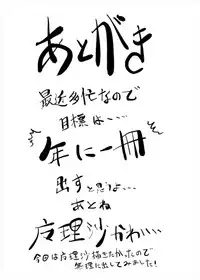 あとがき
最近多忙なので
目標は・・・・
年に一冊
出すと思うよ・・・
あとね
魔理沙かわいい
今回は魔理沙描きたかったので
無理に出してみました!